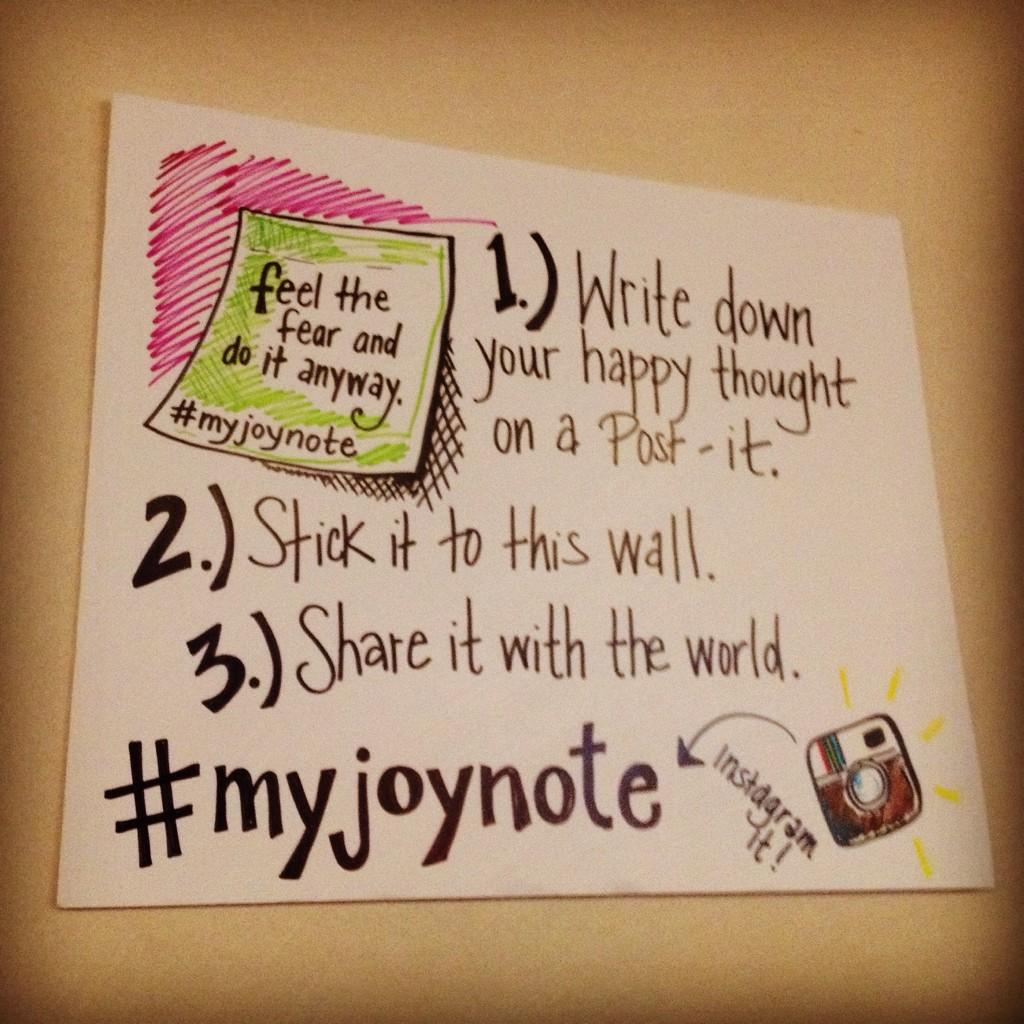 feel the
fear and
do it anyway.
#myjoynote
1.) Write down
your happy thought
on a Post-it.
2.) Stick it to this wall.
3.) Share it with the world.
#myjoynote
Instagram
it!